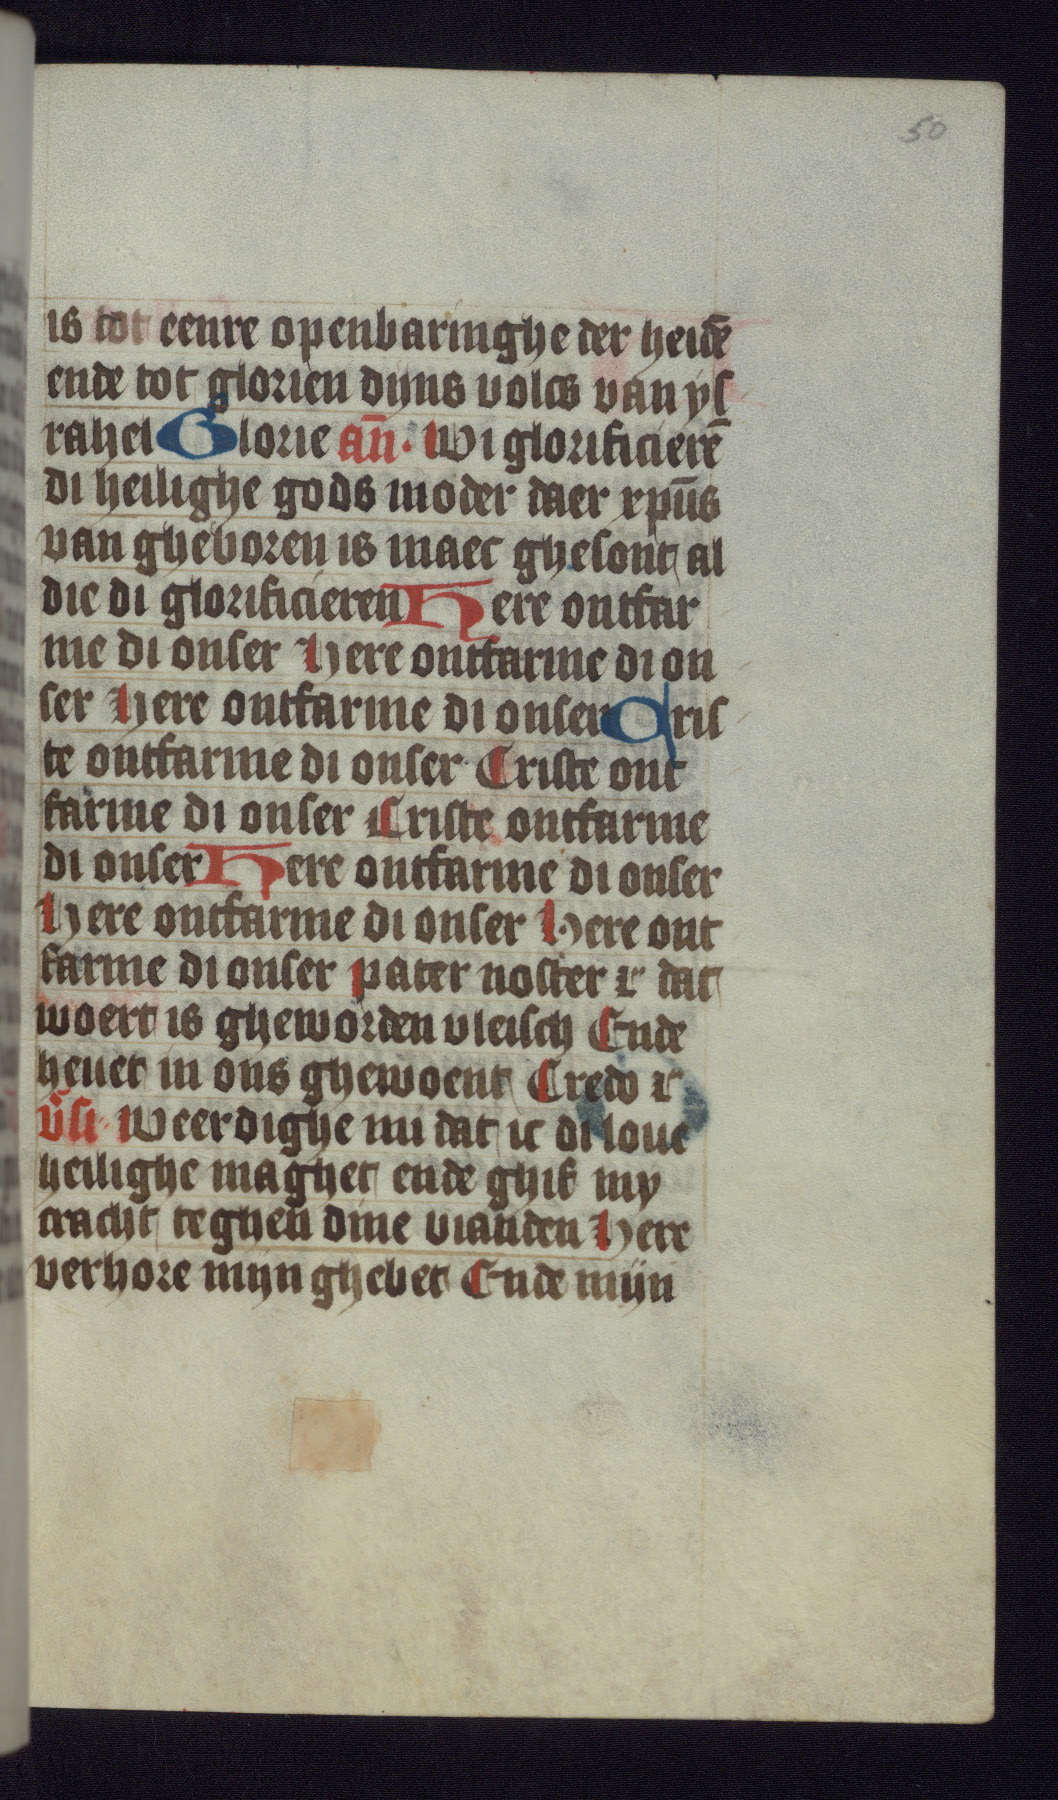 50
is tot eenre openbaringhe der heidē
ende tot glorien dijns volcs van ys
rahel Glorie an̄. Wi glorificierē
di heilighe gods moder daer xpūs
van gheboren is maec ghesont al
die di glorificieren Here ontfar
me di onser Here ontfarme di on
ser Here ontfarme di onser Cris
te ontfarme di onser Criste ont
farme di onser Criste ontfarme
di onser Here ontfarme di onser
Here ontfarme di onser Here ont
farme di onser pater noster ⁊ dat
woert is gheworden vleisch Ende
heuet in ons ghewoent Credo ⁊
v̄si Weerdighe mi dat ic di loue
heilighe maghet ende ghif my
cracht teghen dine vianden Here
verhore mijn ghebet Ende mijn